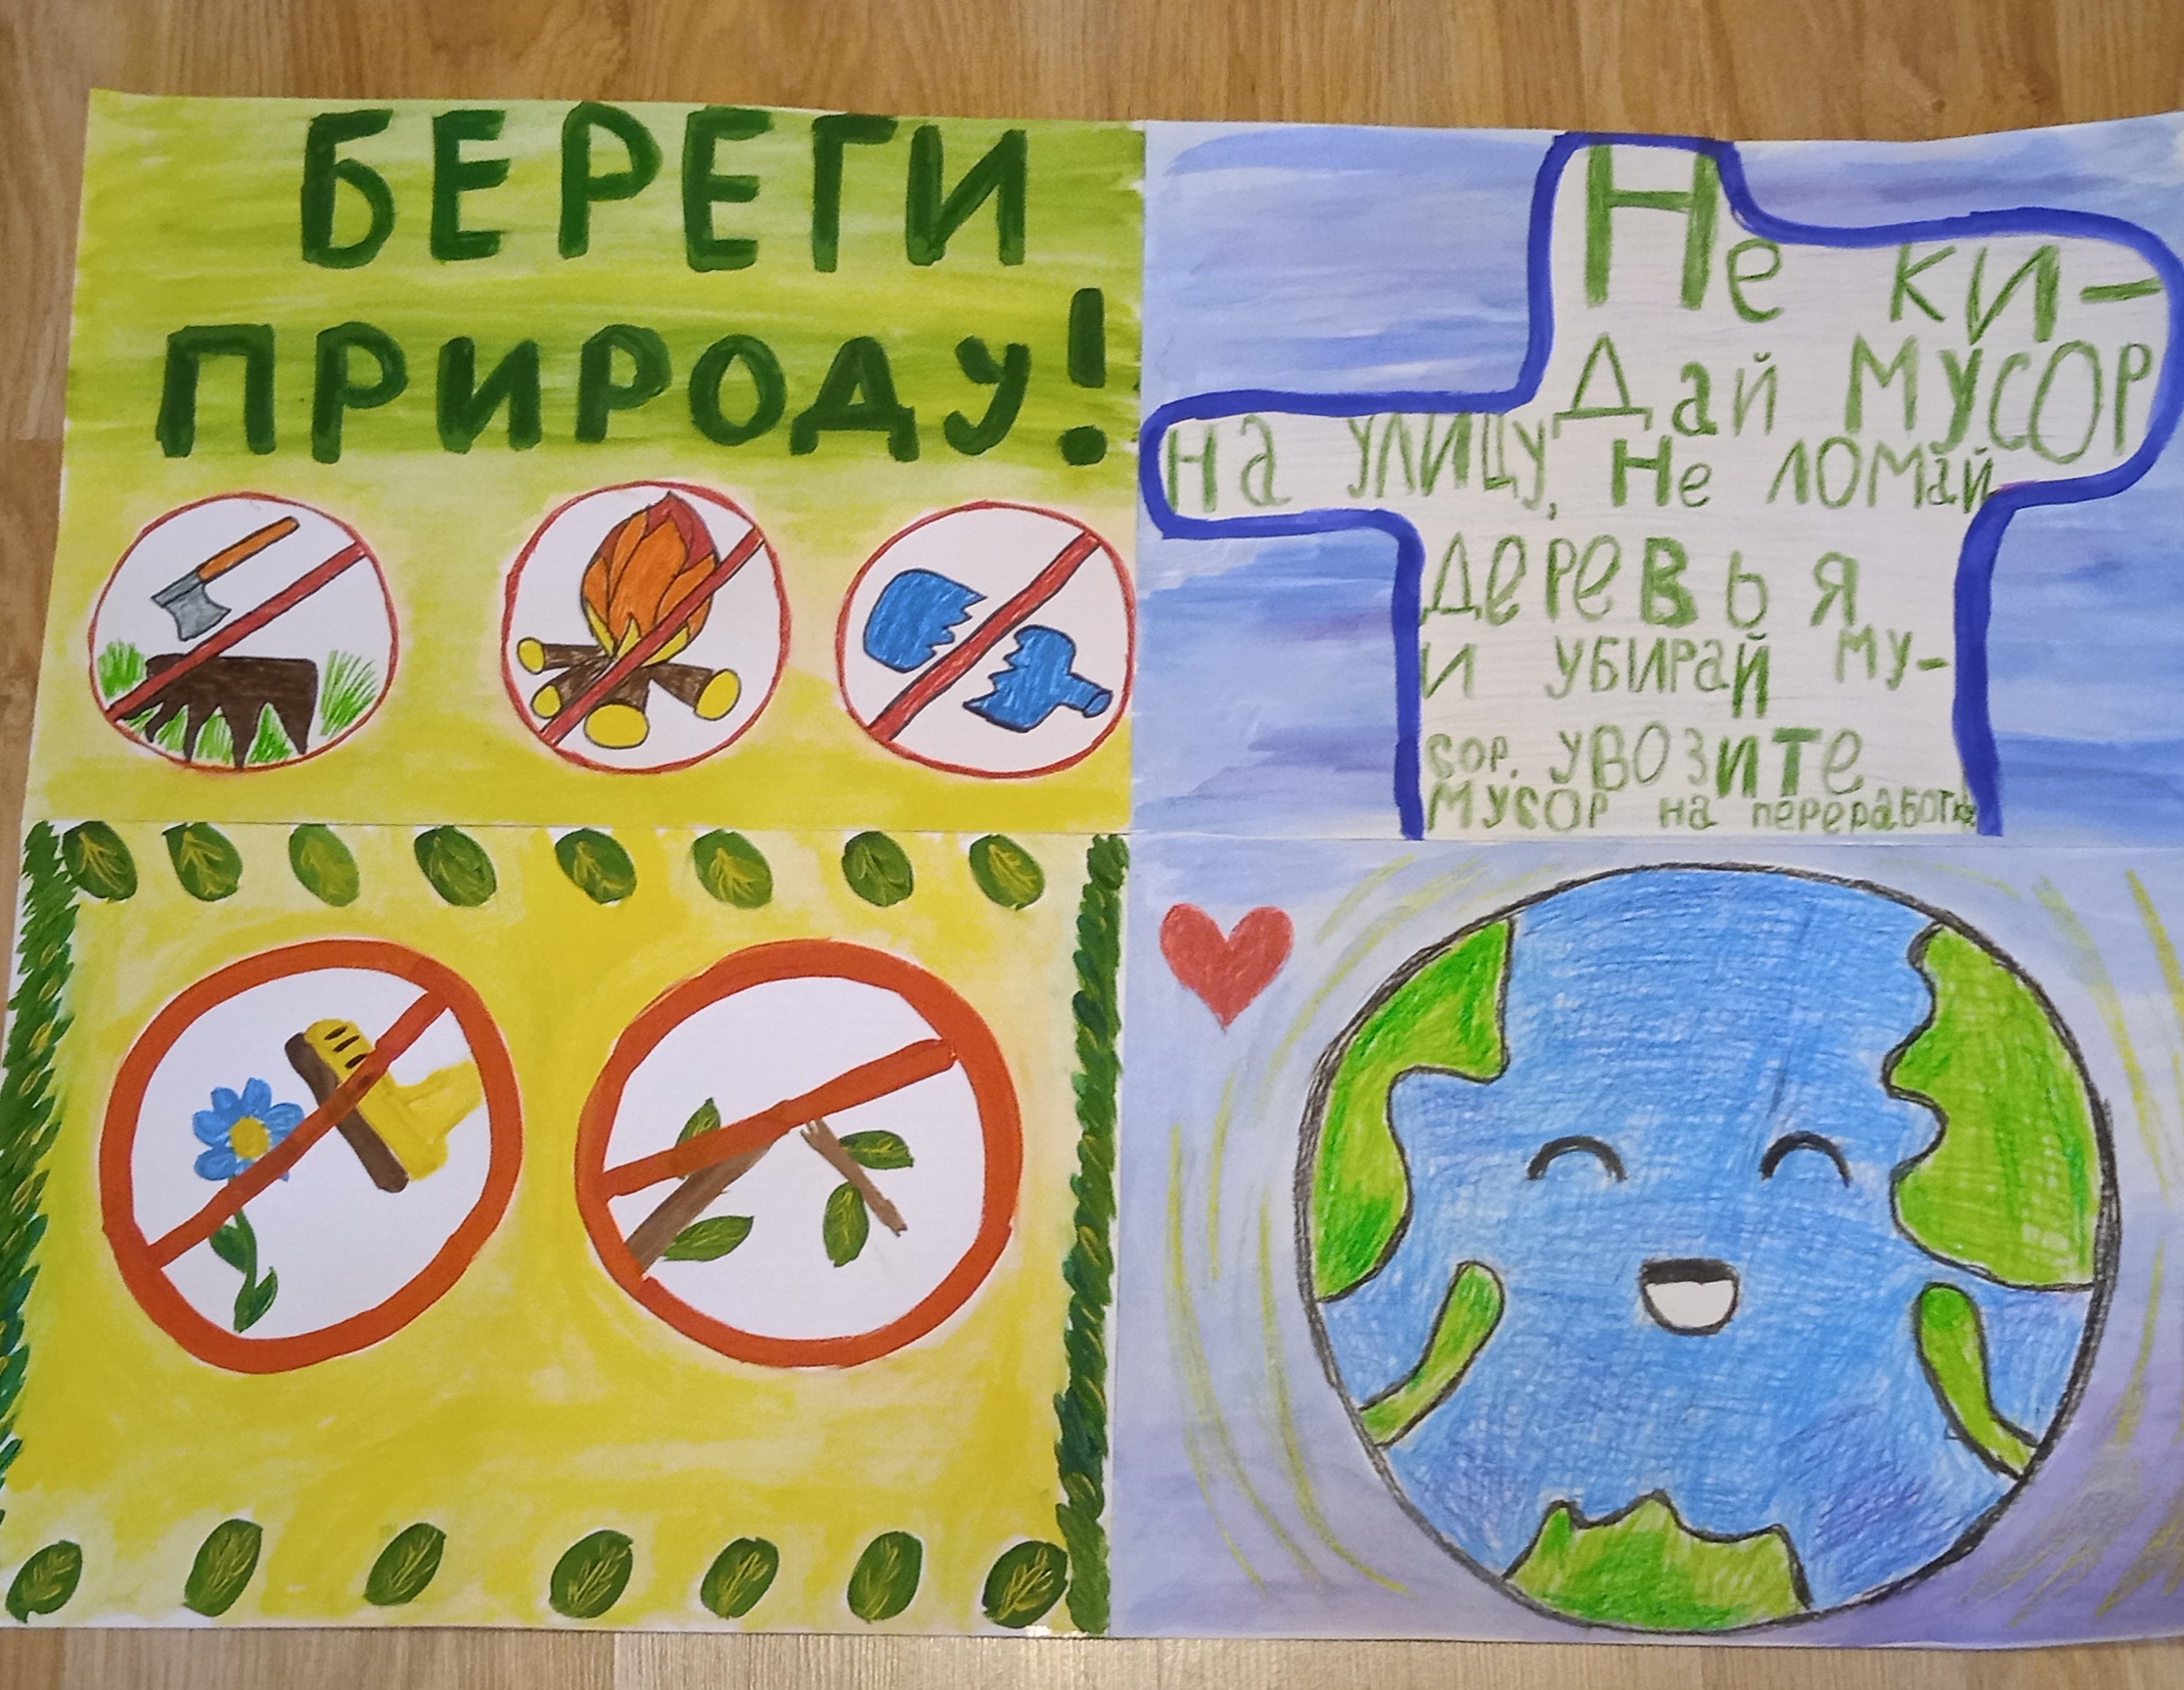 БЕРЕГИ
ПРИРОДУ!
Не ки-
дай мусор
на улицу, не ломай
деревья
и убирай му-
сор. увозите
мусор на переработку